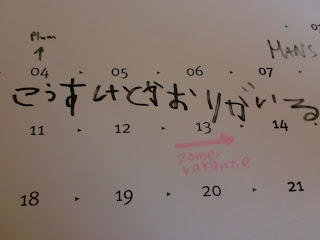 Plum
MANS
04 05 06 07
こうすけとかおりがいる
11 12 13 14
zomer
vakantie
18 19 20 21